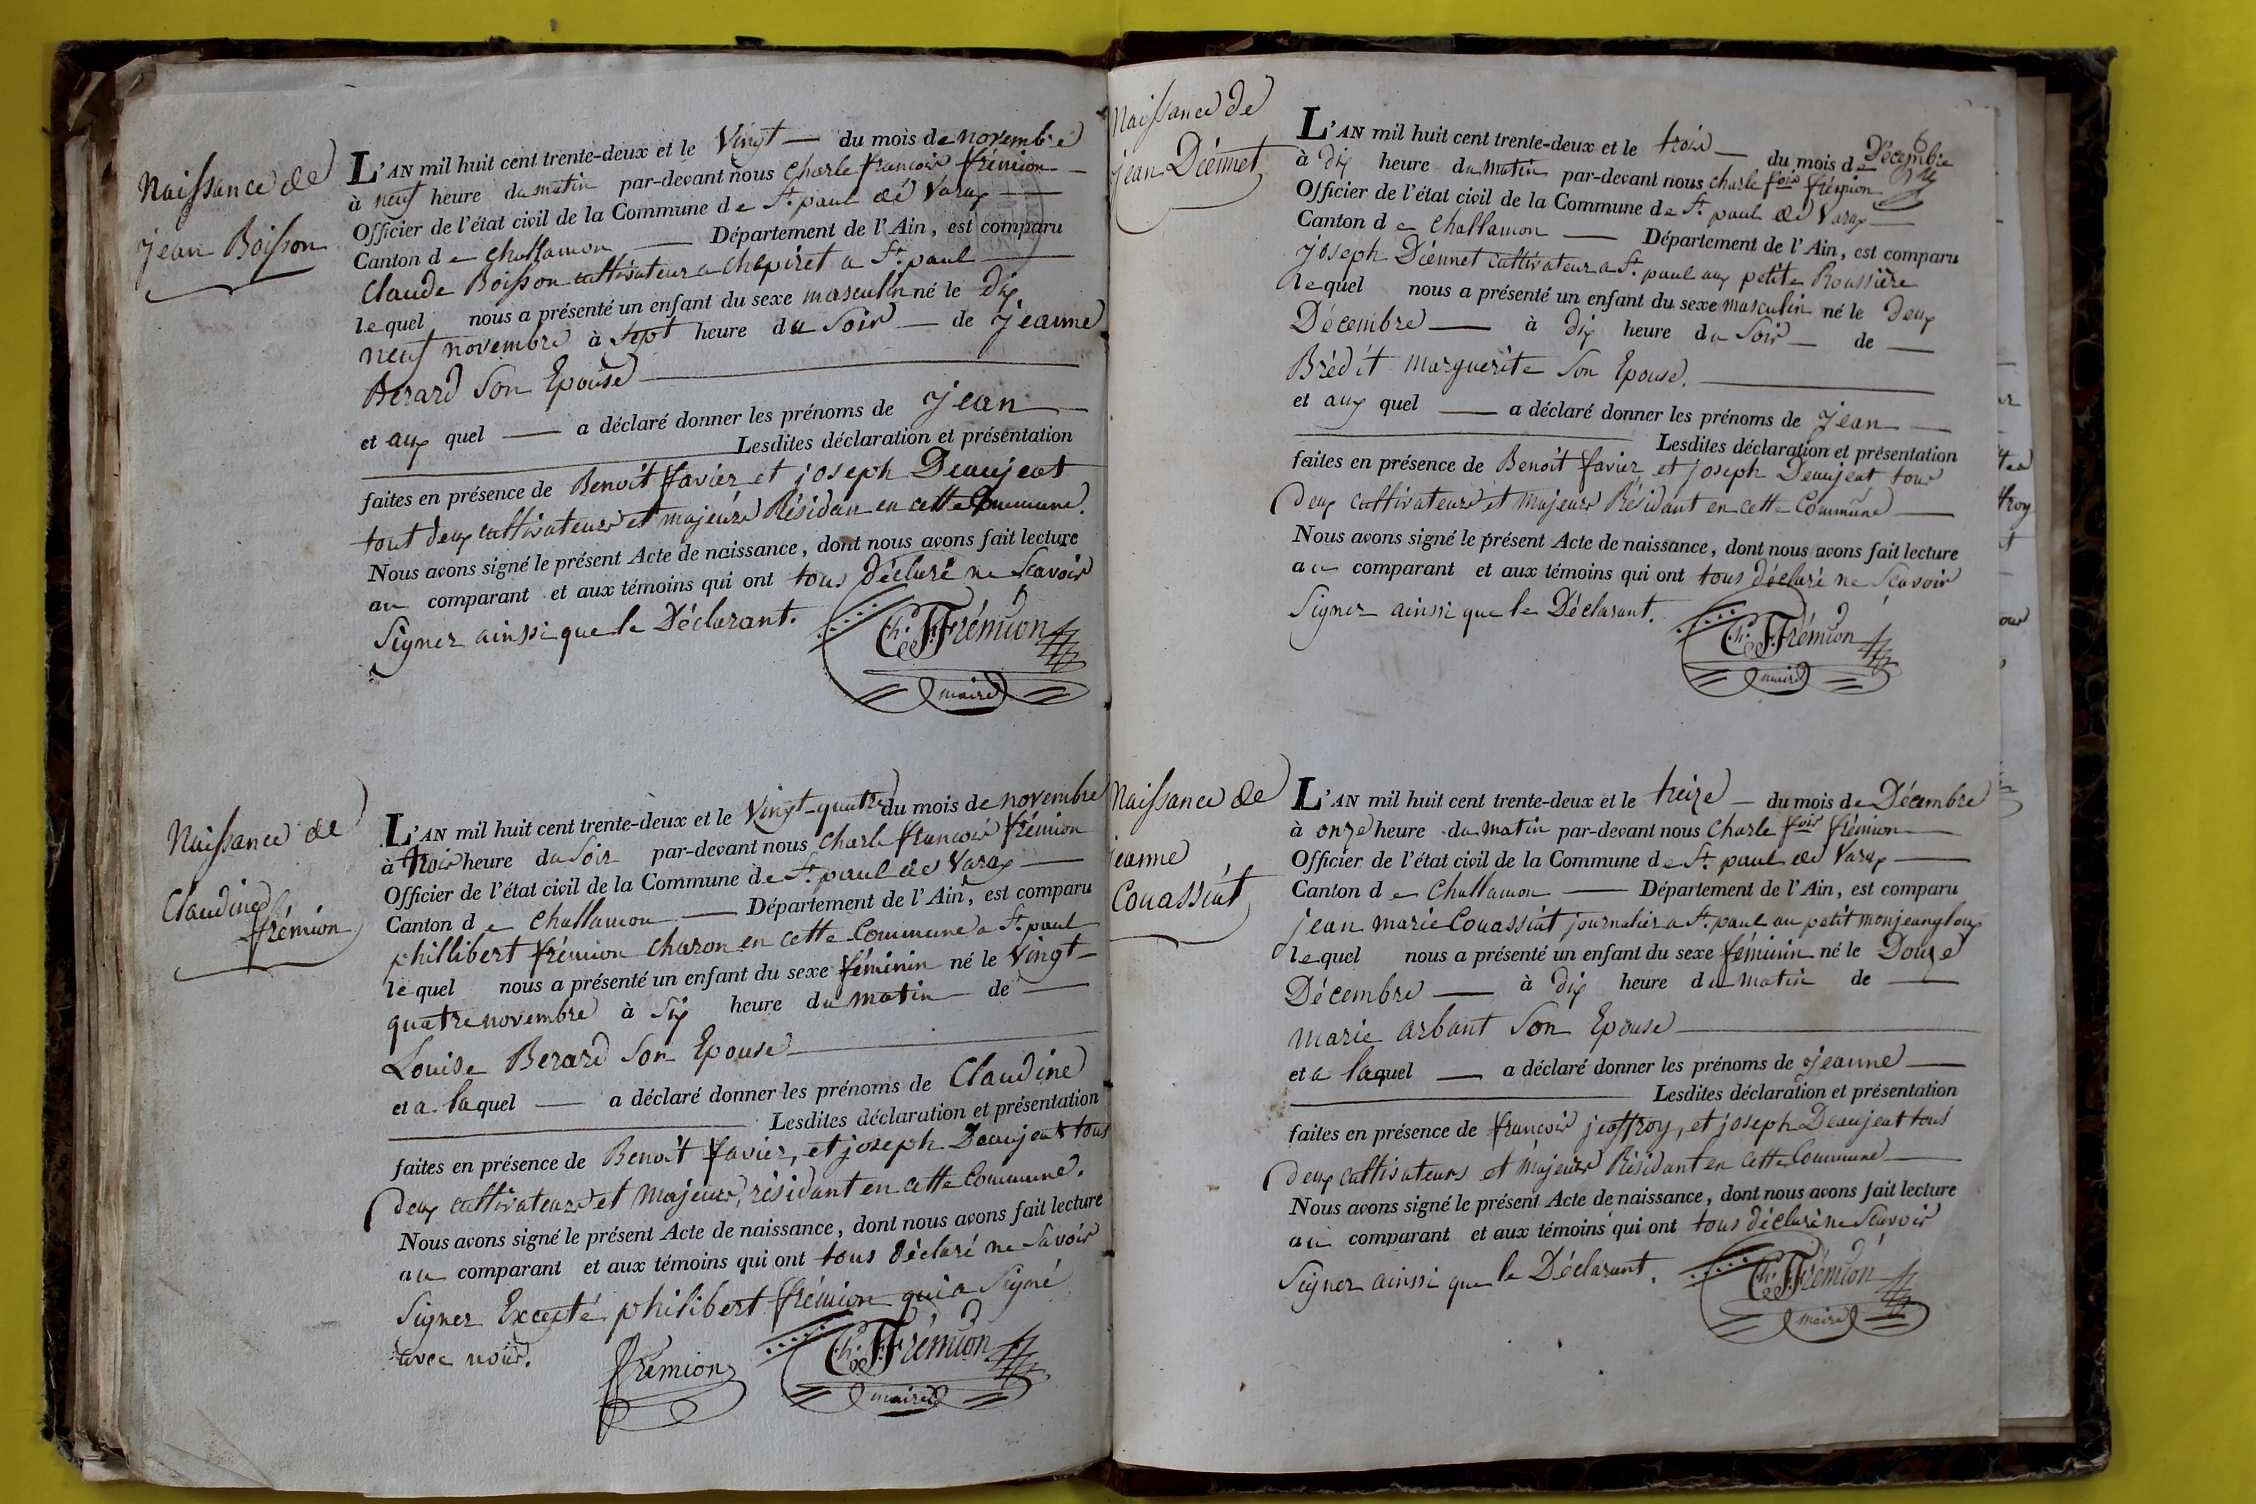 Naissance de
Jean Boisson
L'AN mil huit cent trente-deux et le Vingt — du mois de novembre
à neuf heure du matin par-devant nous Charle francois frémion
Officier de l'état civil de la Commune de St. paul de Varax
Canton de Challamon — Département de l'Ain, est comparu
Claude Boisson cultivateur a Chapiret a St. paul
lequel nous a présenté un enfant du sexe masculin né le dix
neuf novembre à sept heure du Soir — de jeanne
Berard Son Epouse
et aux quel — a déclaré donner les prénoms de jean
Lesdites déclaration et présentation
faites en présence de Benoit favier et joseph Deaujeat
tout deux cultivateurs et majeurs Résidan en cette Commune.
Nous avons signé le présent Acte de naissance, dont nous avons fait lecture
au comparant et aux témoins qui ont tous Déclaré ne Scavoir
Signer ainsi que le Déclarant.
Ch. F. Frémion
maire
Naissance de
Claudine
frémion
L'AN mil huit cent trente-deux et le Vingt-quatre du mois de novembre
à trois heure du Soir par-devant nous Charle francois frémion
Officier de l'état civil de la Commune de St. paul de Varax
Canton de Challamon — Département de l'Ain, est comparu
phillibert frémion charon en cette Commune a St. paul
lequel nous a présenté un enfant du sexe féminin né le Vingt-
quatre novembre à Six heure du matin — de —
Louise Berard Son Epouse
et a laquel — a déclaré donner les prénoms de Claudine
Lesdites déclaration et présentation
faites en présence de Benoit favier, et joseph Deaujeat tous
deux cultivateurs et majeurs, résidant en cette Commune.
Nous avons signé le présent Acte de naissance, dont nous avons fait lecture
au comparant et aux témoins qui ont tous déclaré ne Savoir
Signer Excepté philibert frémion qui a Signé
avec nous.
frémion
Ch. F. Frémion
maire
Naissance de
jean Diénnet
L'AN mil huit cent trente-deux et le trois — du mois de Décembre
à dix heure du matin par-devant nous charle fois frémion
Officier de l'état civil de la Commune de St. paul de Varax
Canton de Challamon — Département de l'Ain, est comparu
joseph Diennet cultivateur a St. paul aux petite Roussière
lequel nous a présenté un enfant du sexe masculin né le deux
Décembre — à dix heure du Soir — de —
Brédit marguerite Son Epouse.
et aux quel — a déclaré donner les prénoms de jean —
Lesdites déclaration et présentation
faites en présence de Benoit favier et joseph Deaujeat tous
deux cultivateurs et majeurs Résidant en cette Commune —
Nous avons signé le présent Acte de naissance, dont nous avons fait lecture
au comparant et aux témoins qui ont tous déclaré ne Scavoir
Signer ainsi que le Déclarant.
Ch. F. Frémion
maire
Naissance de
jeanne
Couassiat
L'AN mil huit cent trente-deux et le treize — du mois de Décembre
à onze heure du matin par-devant nous Charle fois frémion
Officier de l'état civil de la Commune de St. paul de Varax —
Canton de Challamon — Département de l'Ain, est comparu
jean marie Couassiat journalier a St. paul au petit monjeangloux
lequel nous a présenté un enfant du sexe féminin né le Douze
Décembre — à dix heure du matin de —
marie arbant Son Epouse
et a laquel — a déclaré donner les prénoms de jeanne —
Lesdites déclaration et présentation
faites en présence de francois jeoffroy, et joseph Deaujeat tous
deux cultivateurs et majeurs Résidant en cette Commune
Nous avons signé le présent Acte de naissance, dont nous avons fait lecture
au comparant et aux témoins qui ont tous déclaré ne Scavoir
Signer ainsi que le Déclarant.
Ch. F. Frémion
maire